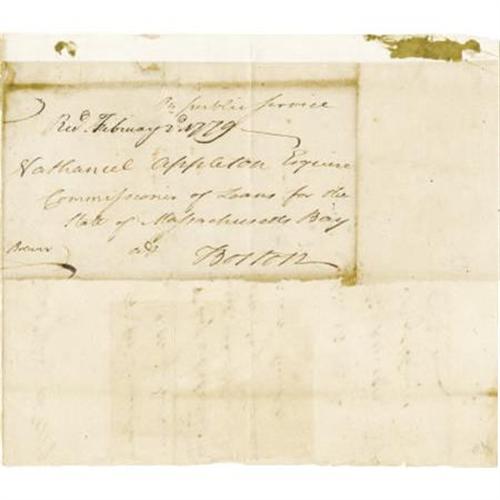 On public service
Recd. February 2d. 1779
Nathaniel Appleton Esquire
Commissioner of Loans for the
State of Massachusetts Bay
Boston